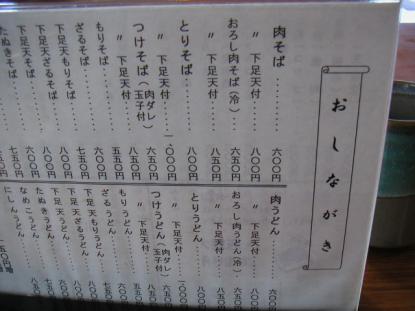 おしながき
肉そば………六〇〇円
〃 下足天付…八〇〇円
おろし肉そば(冷)…六五〇円
〃 下足天付…八五〇円
とりそば………八〇〇円
〃 下足天付…一、〇〇〇円
つけそば(肉ダレ 玉子付)六五〇円
〃 下足天付…八五〇円
もりそば………五五〇円
ざるそば………六〇〇円
下足天もりそば…七五〇円
下足天ざるそば…八〇〇円
下足天そば
たぬきそば
肉うどん………六〇〇
〃 下足天付…八〇〇
おろし肉うどん(冷)
〃 下足天付
とりうどん
〃 下足天付
つけうどん(肉ダレ 玉子付)
〃 下足天付
もりうどん
ざるうどん
下足天もりうどん
下足天ざるうどん
下足天うどん
たぬきうどん
なめこうどん
にしんうどん